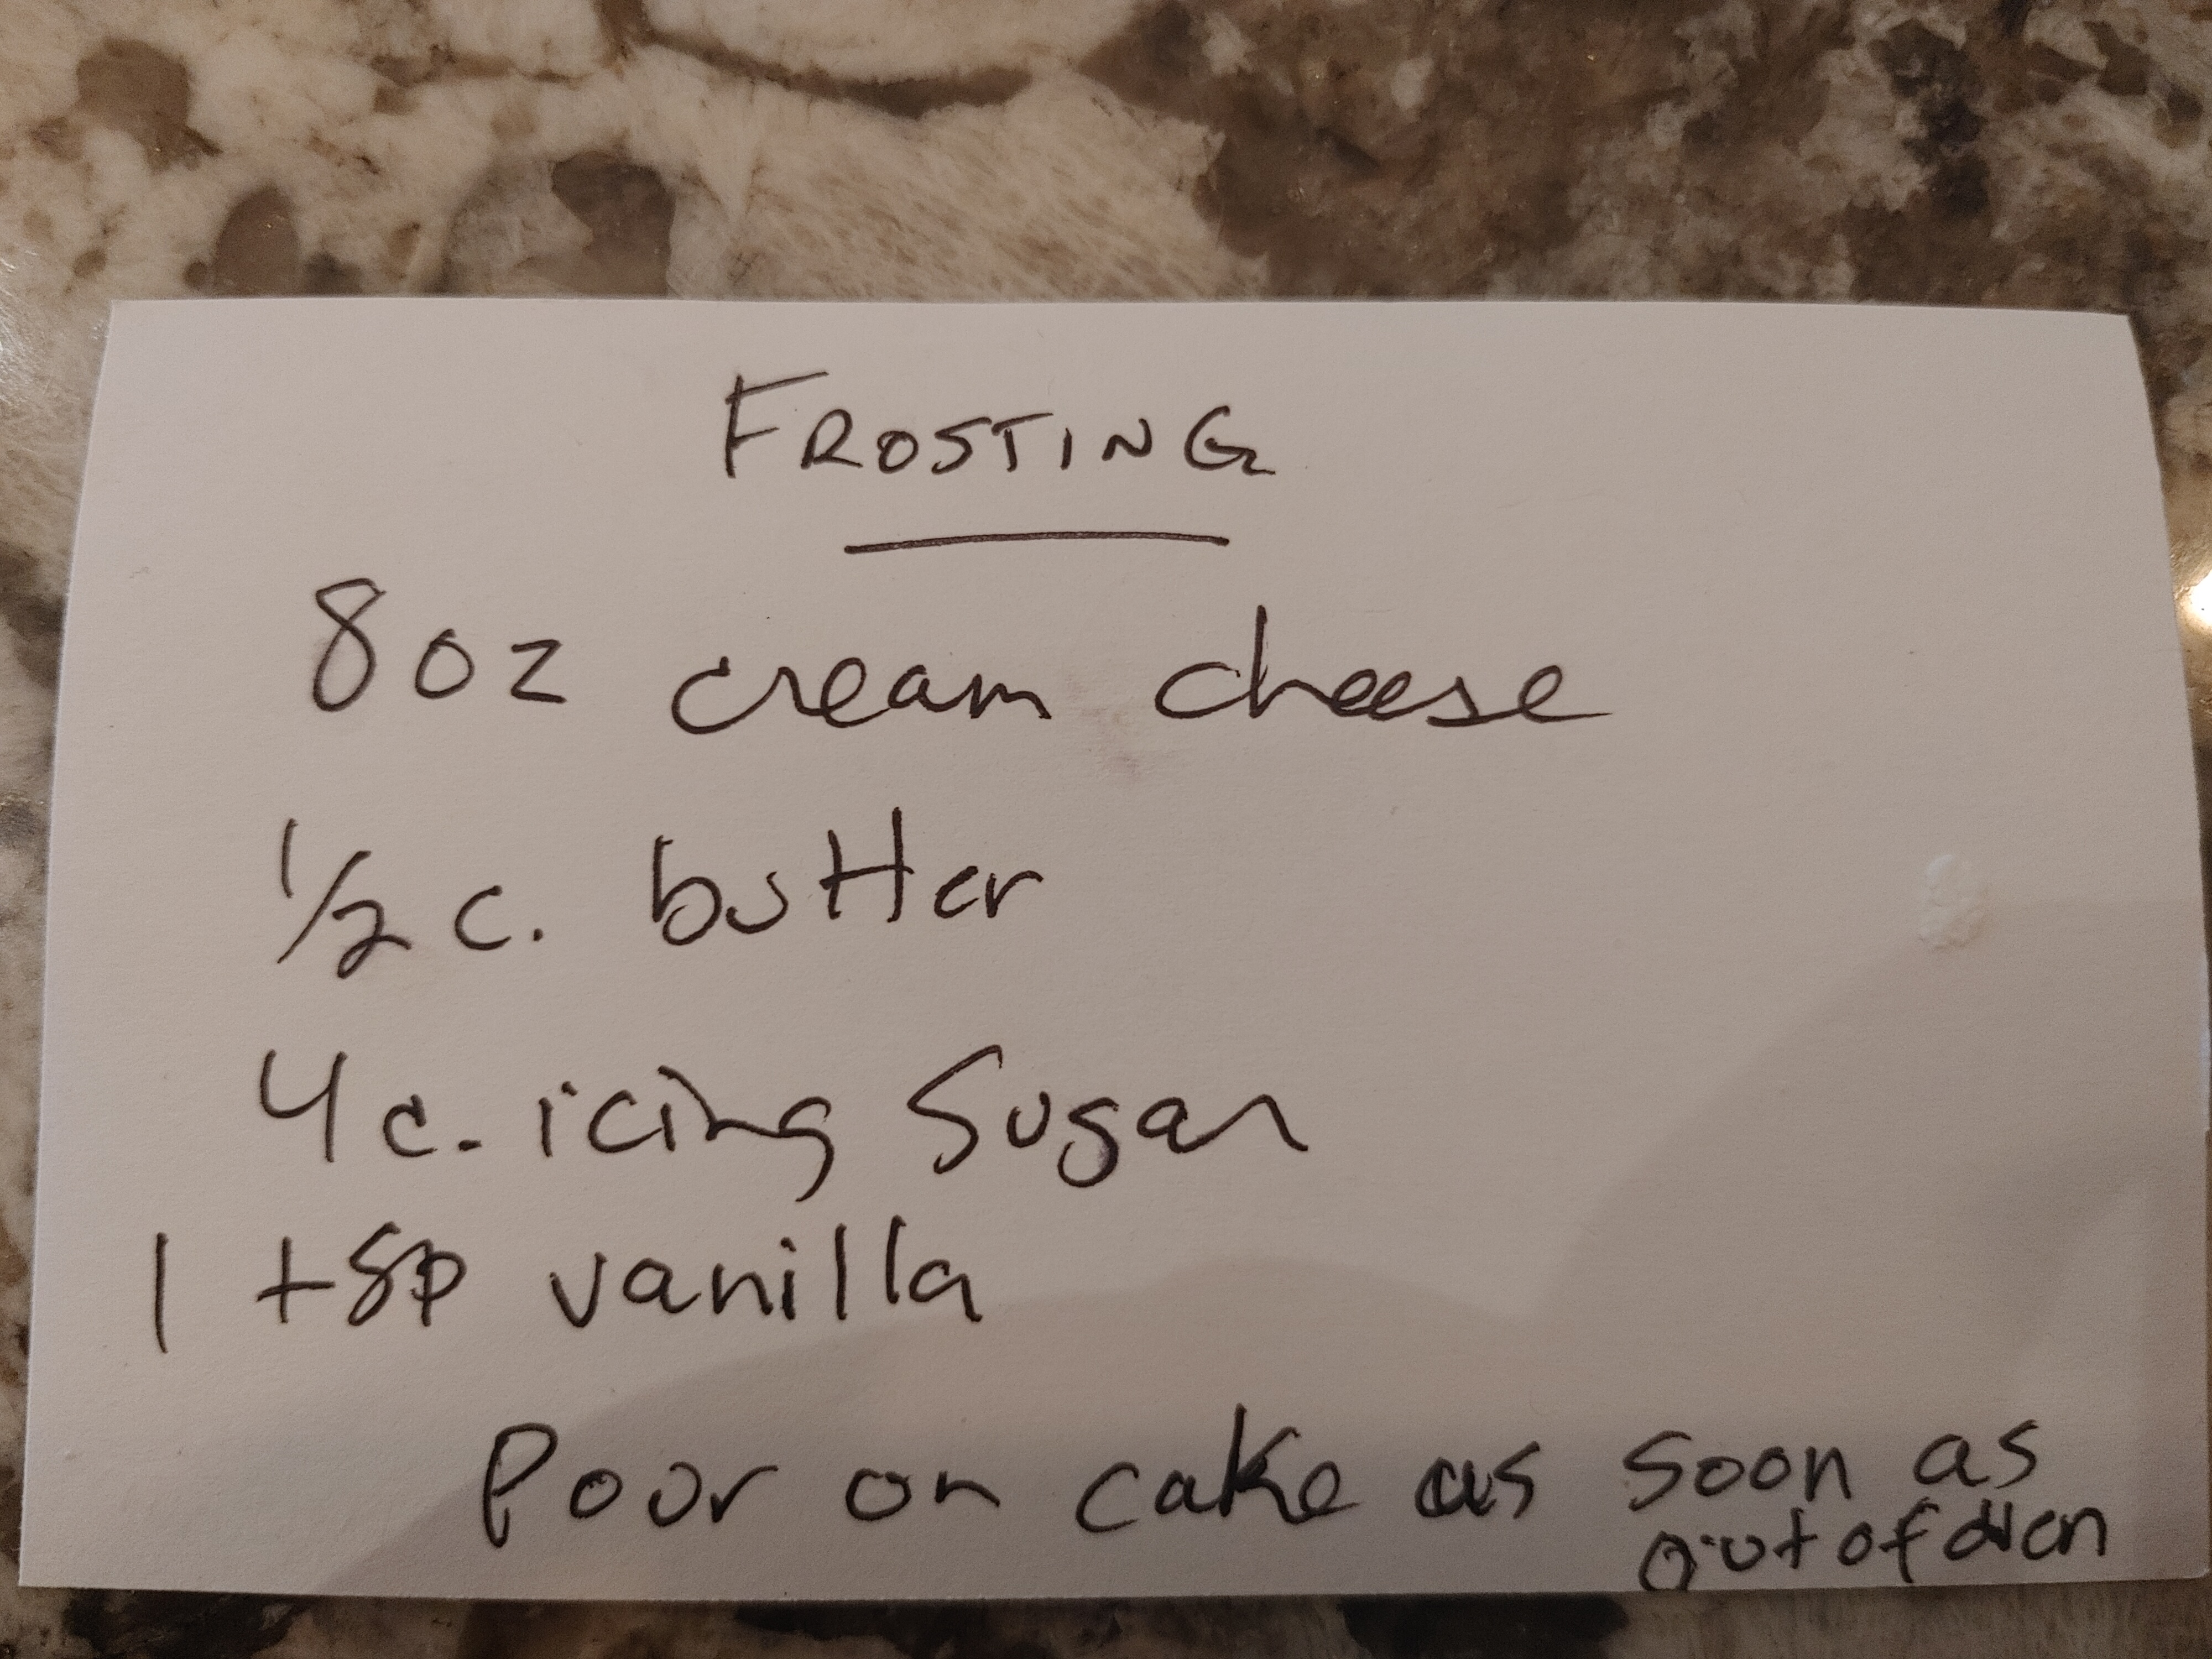 FROSTING
8oz cream cheese
1/2 c. butter
4 c. icing Sugar
1 tsp vanilla
Pour on cake as soon as
out of oven